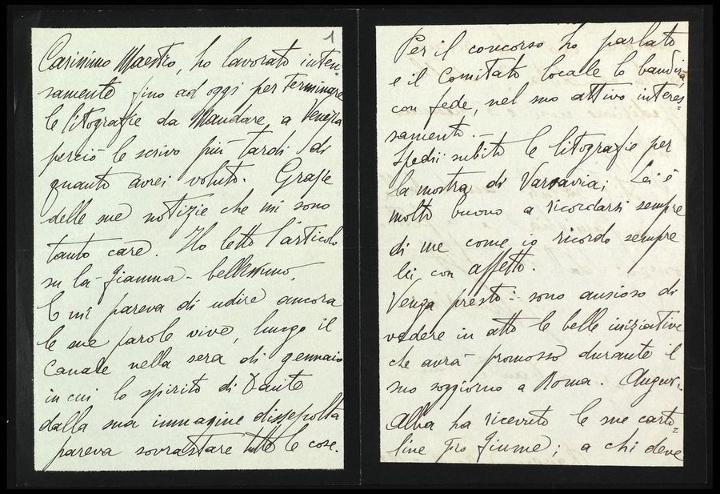 1
Carissimo Maestro, ho lavorato inten-
samente fino ad oggi per terminare
le litografie da mandare a Venezia
perciò le scrivo più tardi di
quanto avrei voluto. Grazie
delle sue notizie che mi sono
tanto care. Ho letto l'articolo
su la - fiamma - bellissimo,
e mi pareva di udire ancora
le sue parole vive, lungo il
Canale nella sera di gennaio
in cui lo spirito di Dante
dalla sua immagine dissepolta
pareva sovrastare tutte le cose.
Per il concorso ho parlato
e il Comitato locale lo bandirà,
con fede nel suo attivo interes-
samento. -
Spedii subito le litografie per
la mostra di Varsavia; Lei è
molto buono a ricordarsi sempre
di me come io ricordo sempre
lei, con affetto.
Venga presto: sono ansioso di
vedere in atto le belle iniziative
che avrà promosso durante il
suo soggiorno a Roma. Auguri.
Alba ha ricevuto le sue carto-
line pro fiume; a chi deve